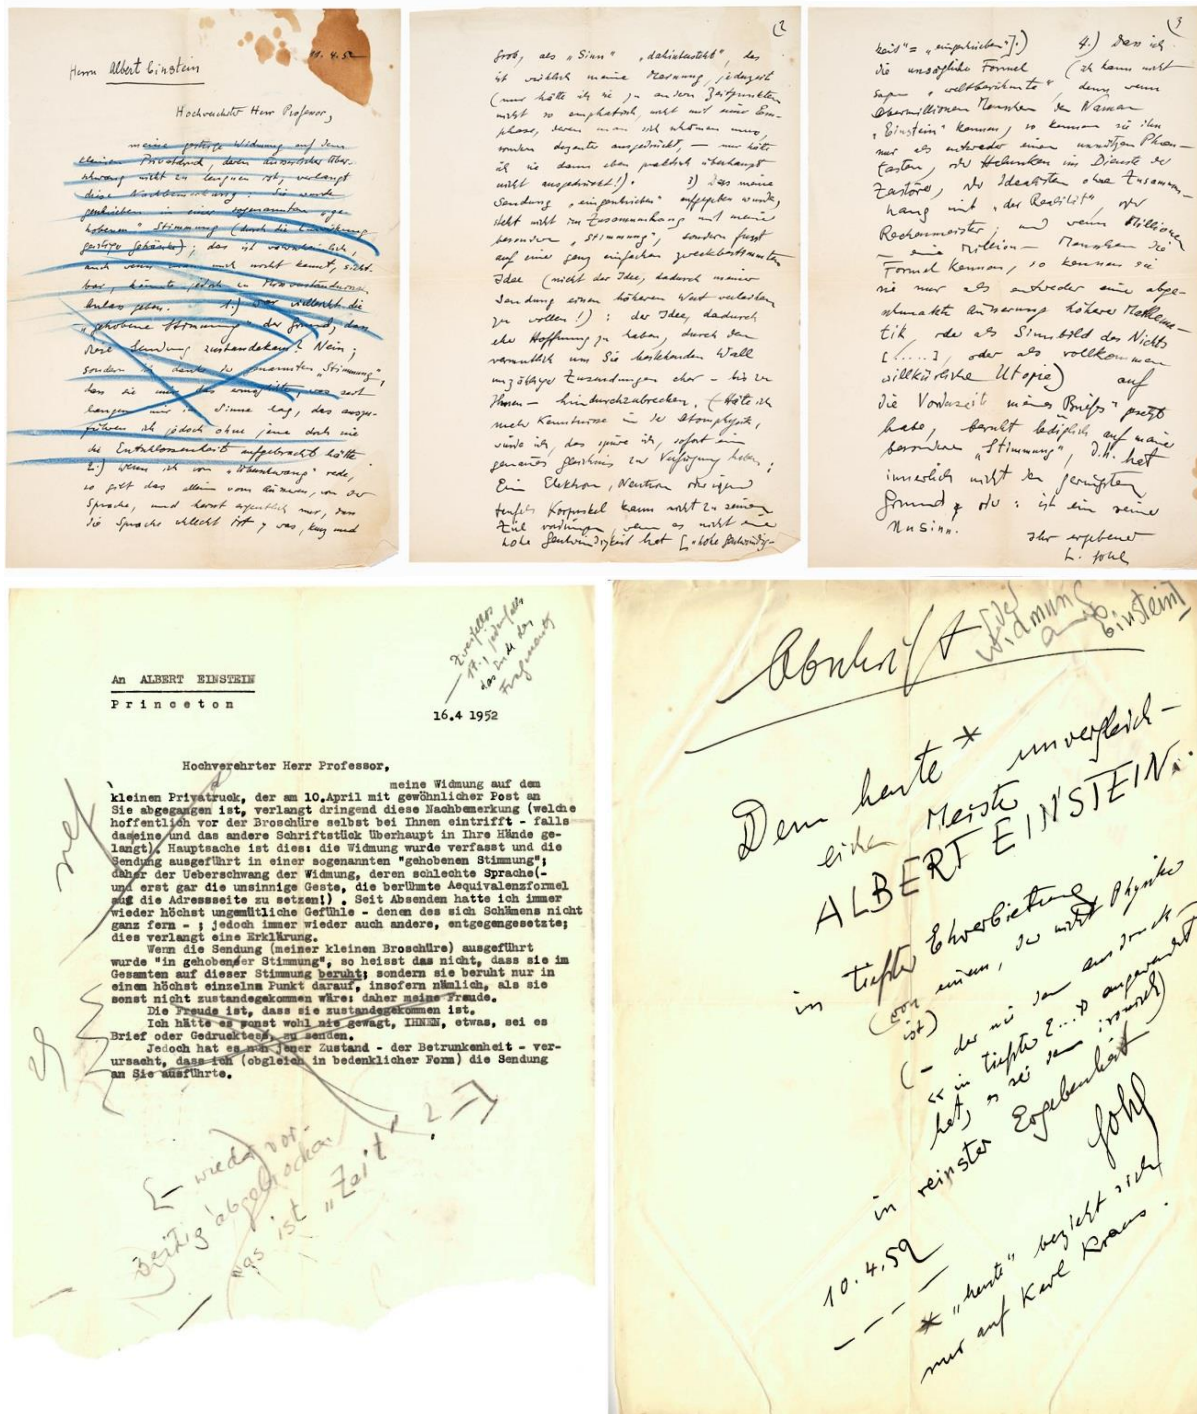 11.4.52
Herrn Albert Einstein
Hochverehrter Herr Professor,
meine gestrige Widmung auf dem
kleinen Privatdruck, deren äusserlicher Über-
schwang nicht zu leugnen ist, verlangt
diese Nachbemerkung: Sie wurde
geschrieben in einer sogenannten „ge-
hobenen" Stimmung (durch die
geistige Getränke); das ist
auch wenn man mich nicht kennt, sicht-
bar, könnte jedoch zu Missverständnissen
Anlass geben. 1.) War vielleicht die
„gehobene Stimmung" der Grund, dass
diese Sendung zustandekam? Nein;
sondern ich danke der genannten „Stimmung",
dass sie mich das was seit
langem mir im Sinne lag, das auszu-
führen ich jedoch ohne jene doch nie
die Entschlossenheit aufgebracht hätte
2.) Wenn ich von „Überschwang" rede,
so gilt das allein vom Äusseren, von der
Sprache, und heisst eigentlich nur, dass
die Sprache schlecht ist; was, kurz und
(2
grob, als „Sinn" „dahintersteht", das
ist wirklich meine Meinung, jederzeit
(nur hätte ich sie zu andern Zeitpunkten
nicht so emphatisch, nicht mit einer Em-
phase, deren man sich schämen muss,
sondern dezenter ausgedrückt, — nur hätte
ich sie dann eben praktisch überhaupt
nicht ausgedrückt!). 3) Dass meine
Sendung „eingeschrieben" aufgegeben wurde,
steht nicht im Zusammenhang mit meiner
besondern „Stimmung", sondern fusst
auf einer ganz einfachen zweckbestimmten
Idee (nicht der Idee, dadurch meiner
Sendung einen höheren Wert verleihen
zu wollen!): der Idee, dadurch
eher Hoffnung zu haben, durch den
vermutlich um Sie bestehenden Wall
unzähliger Zusendungen eher — bis zu
Ihnen — hindurchzubrechen. (Hätte ich
mehr Kenntnisse in der Atomphysik,
würde ich, das spüre ich, sofort ein
genaues Gleichnis zur Verfügung haben;
Ein Elektron, Neutron oder irgend
Korpuskel kann nicht zu seinem
Ziel vordringen, wenn es nicht eine
hohe Geschwindigkeit hat [„hohe Geschwindig-
(3
keit" = „eingeschrieben"].) 4.) Dass ich
die unsägliche Formel (ich kann nicht
sagen „weltberühmte", denn wenn
Abermillionen Menschen den Namen
„Einstein" kennen, so kennen sie ihn
nur als entweder einen unnützen Phan-
tasten, oder Halunken im Dienste der
oder Idealisten ohne Zusammen-
hang mit „der Realität", oder
Rechenmeister; und wenn Millionen
— eine Million — Menschen die
Formel kennen, so kennen sie
sie nur als entweder eine abge-
schmackte Äusserung höherer Mathema-
tik, oder als Sinnbild des Nichts
[.....], oder als vollkommen
willkürliche Utopie) auf
die Vorderseite meines „Briefs" gesetzt
habe, beruht lediglich auf meiner
besondern „Stimmung", d.h. hat
innerlich nicht den geringsten
Grund, oder: ist ein reiner
Unsinn.
Ihr ergebener
L. Hohl
zweifellos
17., jedenfalls
das Ende des
Fragments
An ALBERT EINSTEIN
Princeton
16.4 1952
Hochverehrter Herr Professor,
meine Widmung auf dem
kleinen Privatruck, der am 10.April mit gewöhnlicher Post an
Sie abgegangen ist, verlangt dringend diese Nachbemerkung (welche
hoffentlich vor der Broschüre selbst bei Ihnen eintrifft - falls
das eine und das andere Schriftstück überhaupt in Ihre Hände ge-
langt). Hauptsache ist dies: die Widmung wurde verfasst und die
Sendung ausgeführt in einer sogenannten "gehobenen Stimmung";
daher der Ueberschwang der Widmung, deren schlechte Sprache(-
und erst gar die unsinnige Geste, die berühmte Aequivalenzformel
auf die Adressseite zu setzen!) . Seit Absenden hatte ich immer
wieder höchst ungemütliche Gefühle - denen des sich Schämens nicht
ganz fern - ; jedoch immer wieder auch andere, entgegengesetzte;
dies verlangt eine Erklärung.
Wenn die Sendung (meiner kleinen Broschüre) ausgeführt
wurde "in gehobender Stimmung", so heisst das nicht, dass sie im
Gesamten auf dieser Stimmung beruht; sondern sie beruht nur in
einem höchst einzelnm Punkt darauf, insofern nämlich, als sie
sonst nicht zustandegekommen wäre: daher meine Freude.
Die Freude ist, dass sie zustandegekommen ist.
Ich hätte es sonst wohl nie gewagt, IHNEN, etwas, sei es
Brief oder Gedrucktess, zu senden.
Jedoch hat es nun jener Zustand - der Betrunkenheit - ver-
ursacht, dass ich (obgleich in bedenklicher Form) die Sendung
an Sie ausführte.
[— wieder vor-
zeitig abgebrochen.
was ist „Zeit"? —]
Abschrift [der
Widmung
an
Einstein]
Dem heute* unvergleich-
lichen Meister
ALBERT EINSTEIN.
in tiefster Ehrerbietung
(von einem, der nicht Physiker
ist)
(— der nie den Ausdruck —
«in tiefster E...» angewandt
hat, es sei denn ironisch)
in reinster Ergebenheit
Hohl
10.4.52
* „heute" bezieht sich
nur auf Karl Kraus.